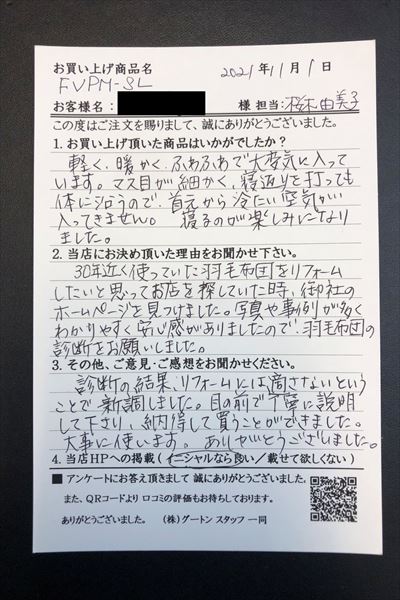 お買い上げ商品名
FVPM-SL
2021年11月1日
お客様名：
様 担当：桜木由美子
この度はご注文を賜りまして、誠にありがとうございました。
1. お買い上げ頂いた商品はいかがでしたか？
軽く、暖かく、ふわふわで大変気に入って
います。マス目が細かく、寝返りを打っても
体に沿うので、首元から冷たい空気が
入ってきません。 寝るのが楽しみになり
ました。
2. 当店にお決め頂いた理由をお聞かせ下さい。
30年近く使っていた羽毛布団をリフォーム
したいと思ってお店を探していた時、御社の
ホームページを見つけました。写真や事例が多く
わかりやすく安心感がありましたので、羽毛布団の
診断をお願いしました。
3. その他、ご意見・ご感想をお聞かせください。
診断の結果、リフォームには適さないという
ことで新調しました。目の前で丁寧に説明
して下さり、納得して買うことができました。
大事に使います。ありがとうございました。
4. 当店HPへの掲載（イニシャルなら良い／載せて欲しくない）
■ アンケートにお答え頂きまして 誠にありがとうございました。
また、QRコードより 口コミの評価もお待ちしております。
ありがとうございました。 （株）グートン スタッフ 一同